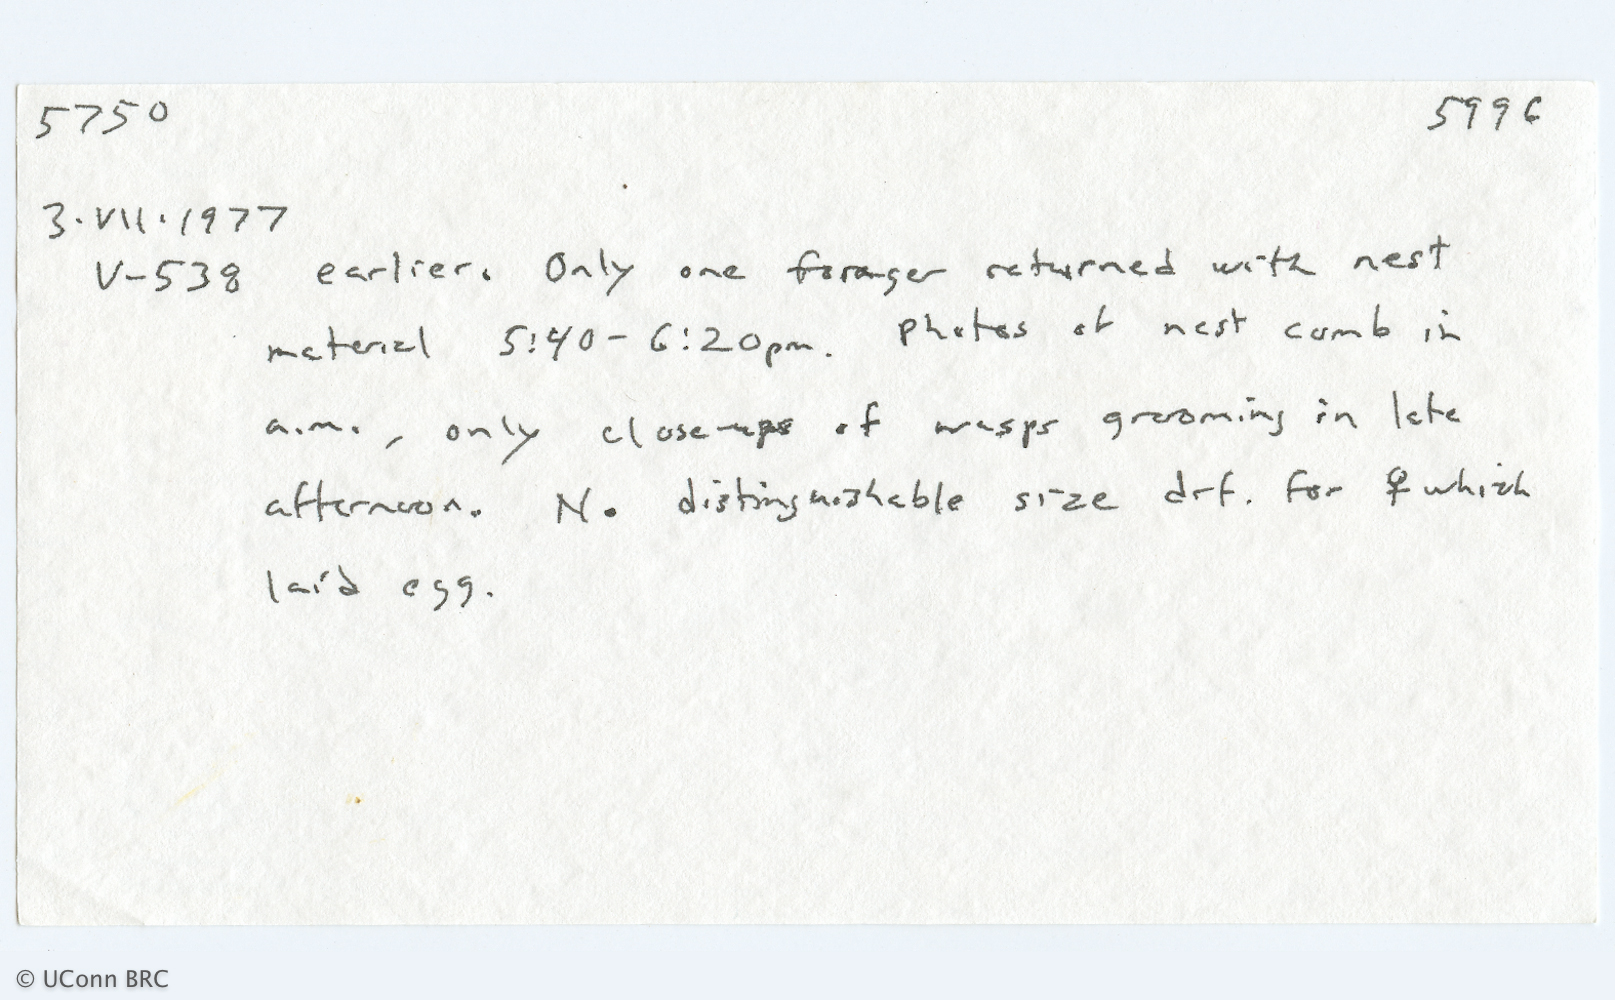 5750 5996
3.VII.1977
V-538 earlier. Only one forager returned with nest
material 5:40-6:20pm. Photos of nest comb in
a.m., only close-ups of wasps grooming in late
afternoon. No distinguishable size dif. for ♀ which
laid egg.
© UConn BRC